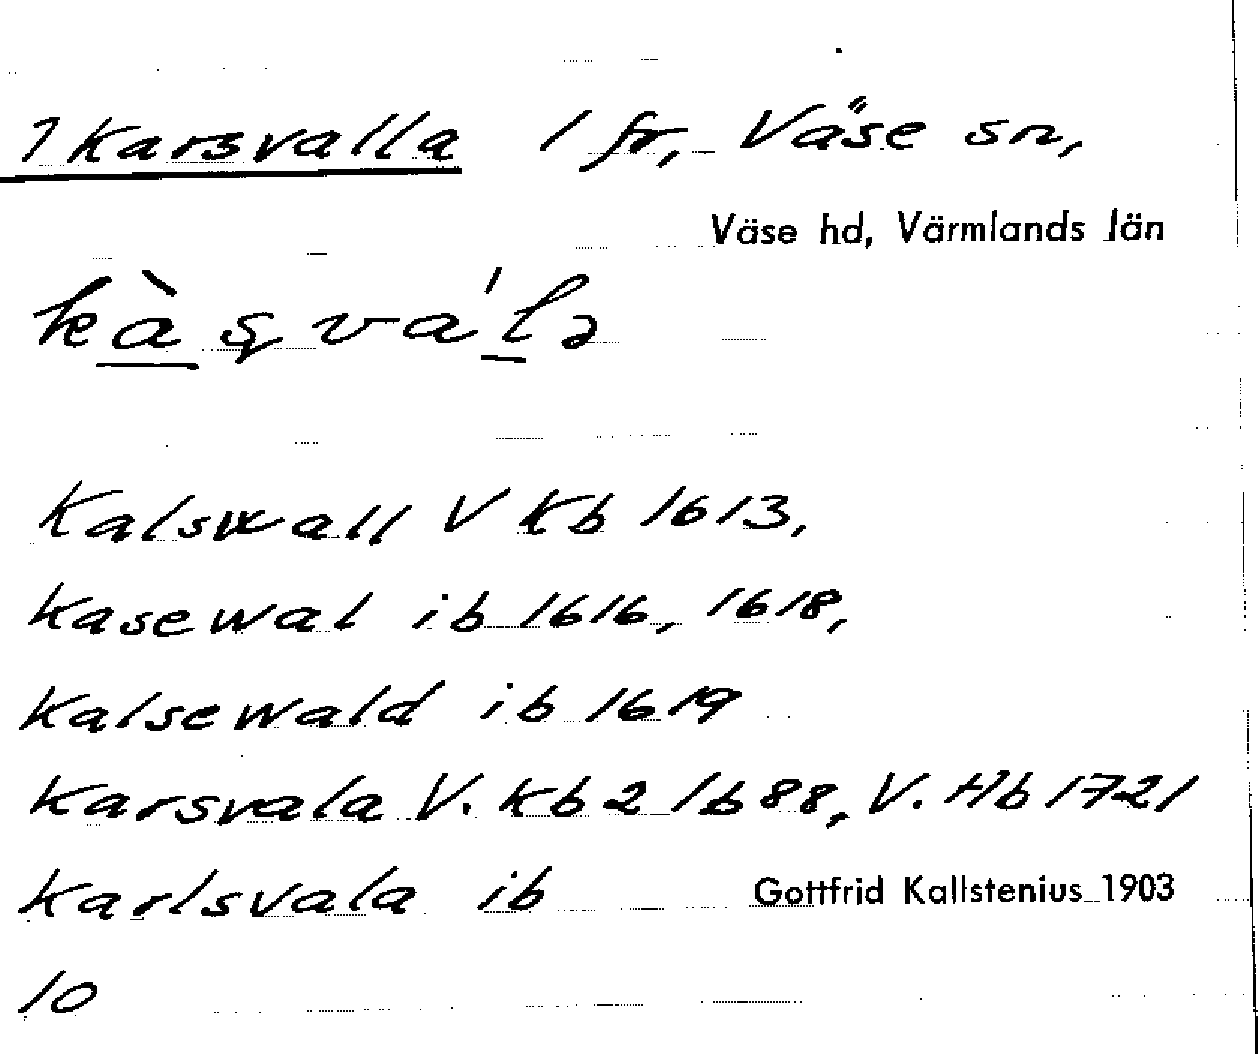 1 Karsvalla 1 fr, Väse sn,
Väse hd, Värmlands län
kàșva´lə
Kalswall V Kb 1613,
Kasewal ib 1616, 1618,
Kalsewald ib 1619
Karsvala V. Kb 2 1688, V. Hb 1721
Karlsvala ib
Gottfrid Kallstenius 1903
10